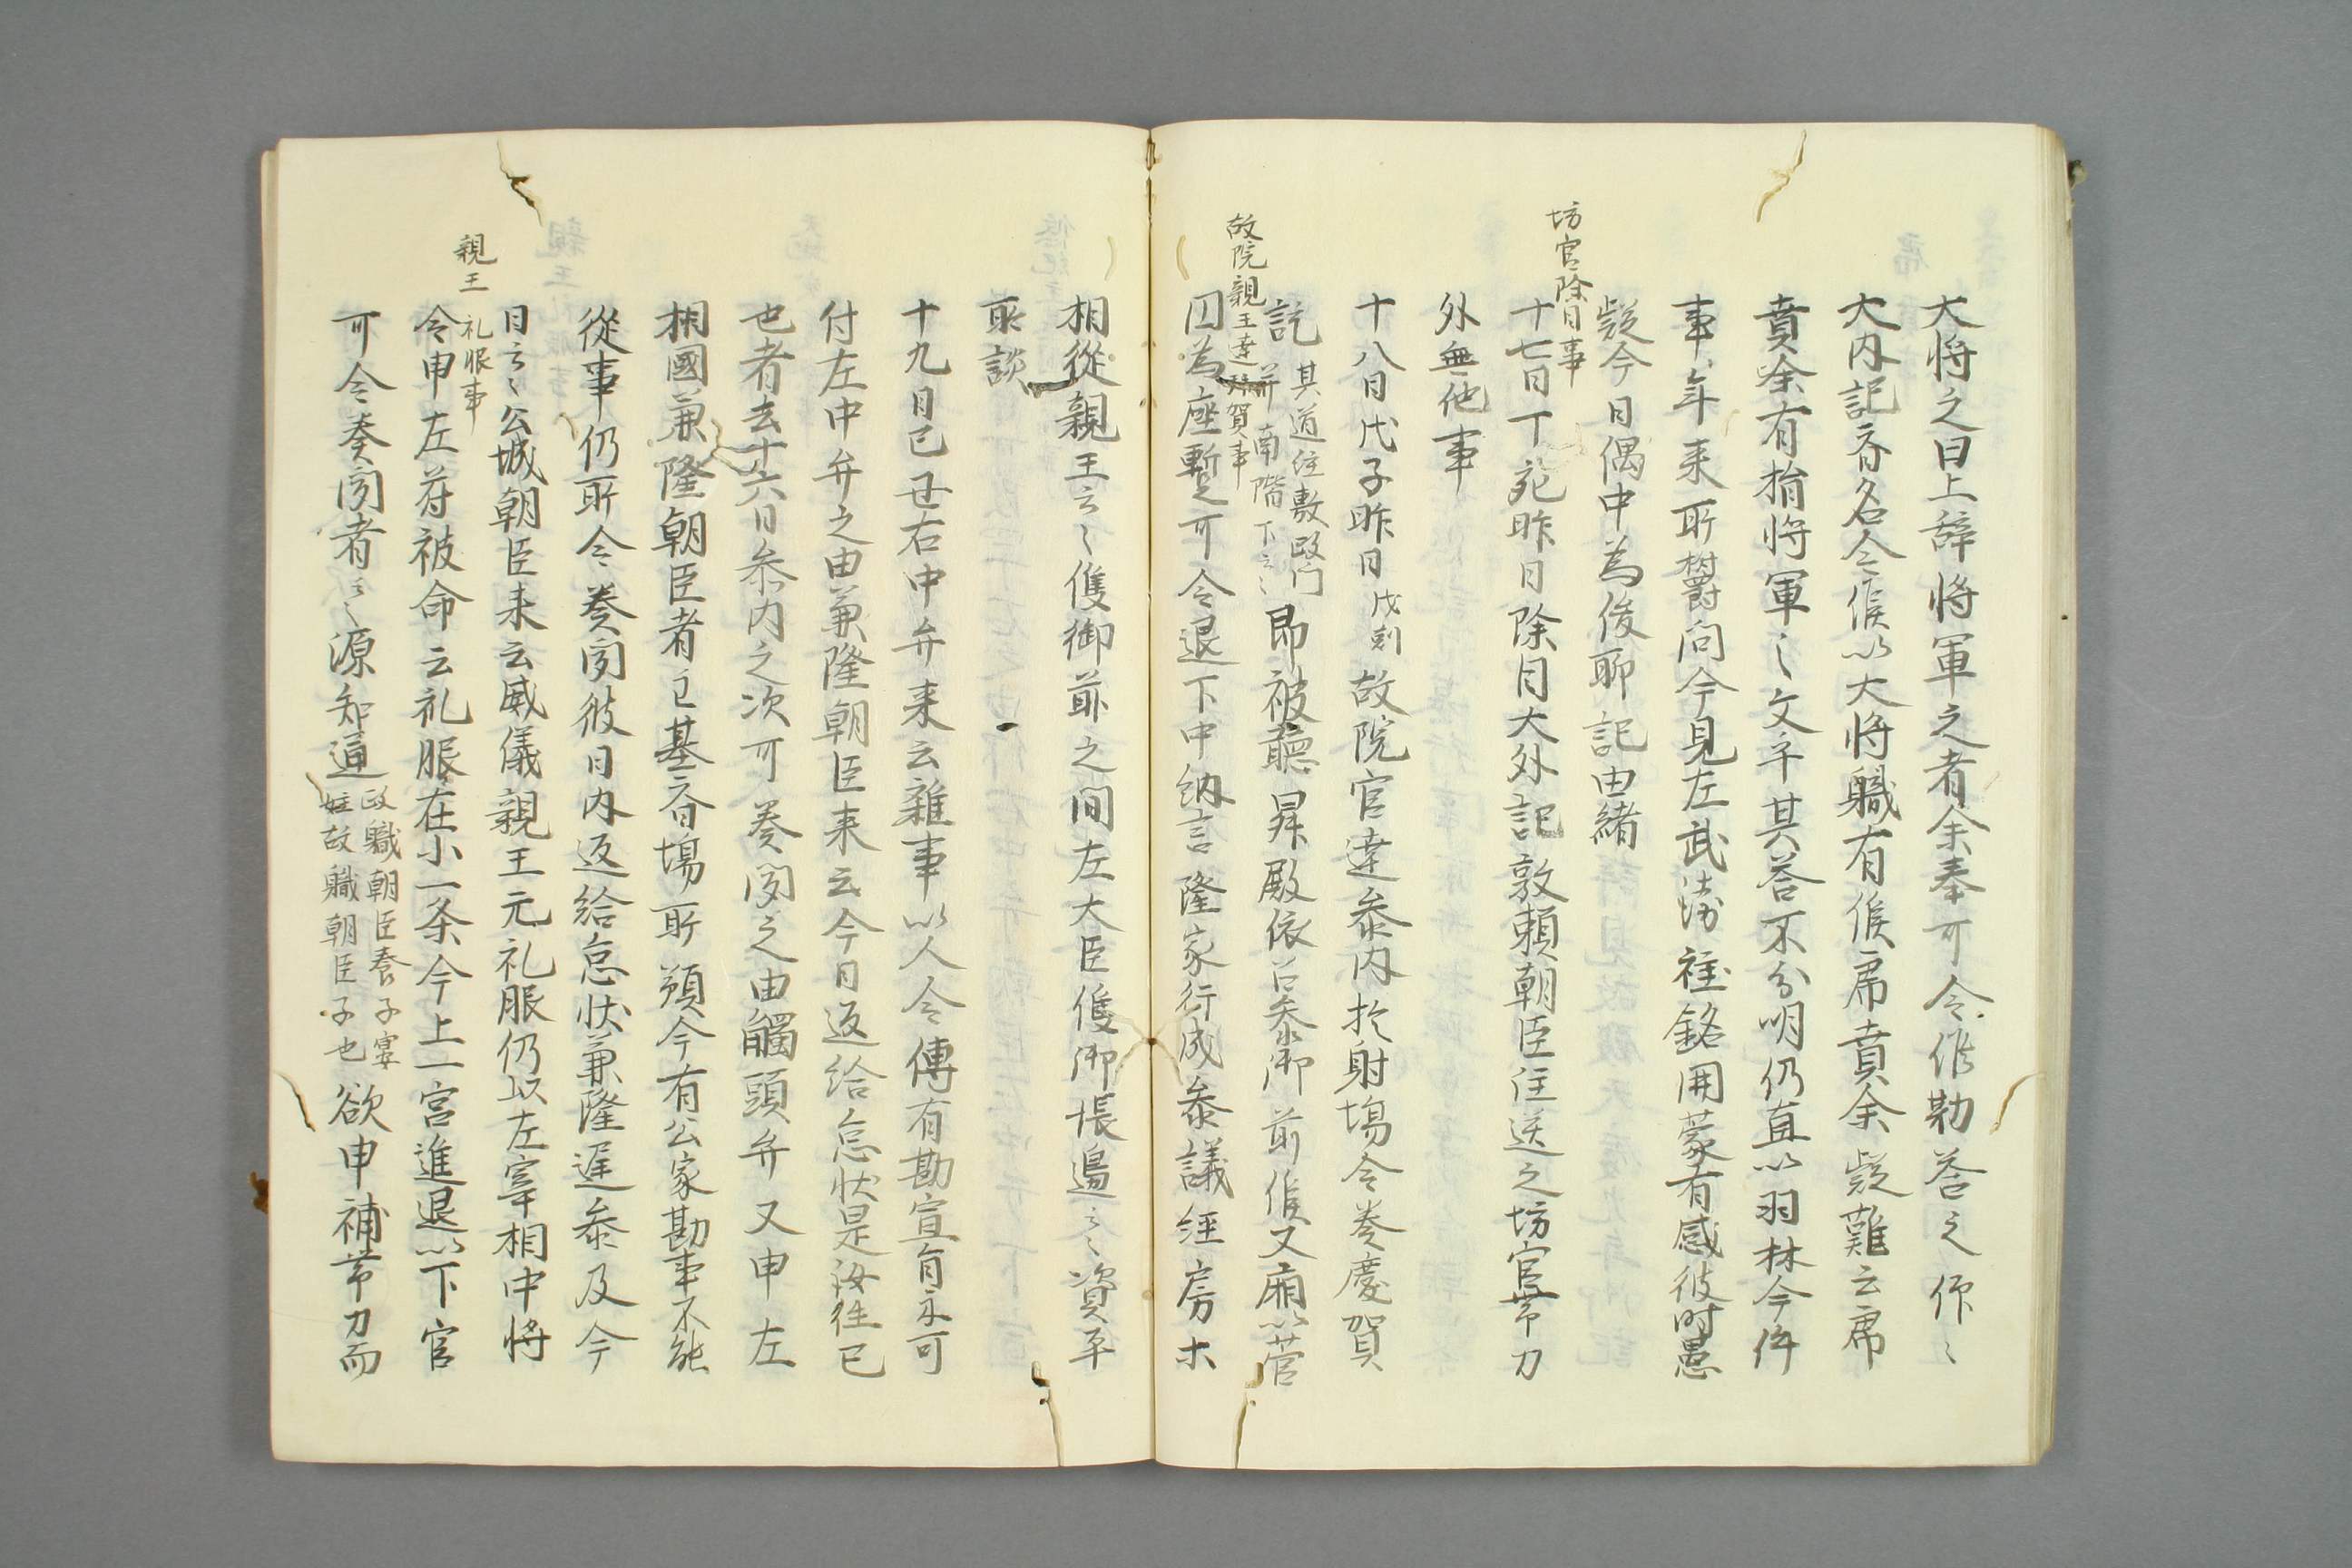 大将之日上辞将軍之者余奉可令作勅荅之作〻
大内記斉名令候以大将職有候席賁余疑難云席
賁余有指将軍〻文乎其荅不分明仍直以羽林今件
事年来所欝向今見左武衛注銘囲蒙有感彼時愚
疑今日偶中為後聊記由緒
坊官除目事
十七日丁死昨日除目大外記敦頼朝臣注送之坊官帯刀
外無他事
十八日戊子昨日戊刻故院官達参内於射塲令奏慶賀
故院親王達拝賀事
訖其道往敷政門并南階下云〻即被聽昇殿依召参御前候又廂以菅
円為座暫之可令退下中納言隆家行成参議経房木
相從親王云〻候御前之間左大臣候御帳邊云〻資平
所談
十九日己丑右中弁来云雜事以人令傳有勘宣旨未可
付左中弁之由兼隆朝臣来云今日返給怠状是汝往已
也者去十六日参内之次可奏聞之由觸頭弁又申左
相國兼隆朝臣者已基斉塲所頭今有公家勘事不能
從事仍所令奏聞彼日内返給怠状兼隆遅参及今
日云〻公城朝臣来云威儀親王元礼服仍以左宰相中将
親王礼服事
令申左府被命云礼服在小一条今上一宮進退以下官
可令奏聞者云〻源知道政職朝臣養子寔故職朝臣子也欲申補帯刀而